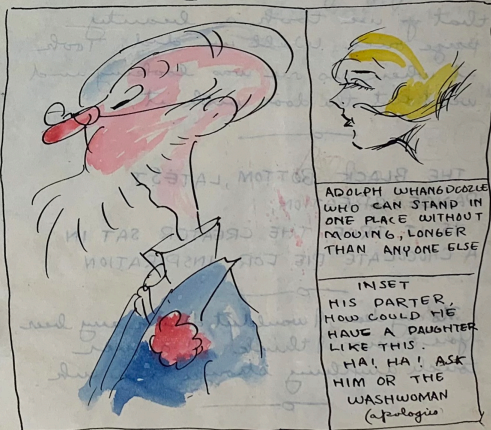 ADOLPH WHANGDOOZLE
WHO CAN STAND IN
ONE PLACE WITHOUT
MOVING, LONGER
THAN ANYONE ELSE
INSET
HIS DARTER,
HOW COULD HE
HAVE A DAUGHTER
LIKE THIS.
HA! HA! ASK
HIM OR THE
WASHWOMAN
(apologies